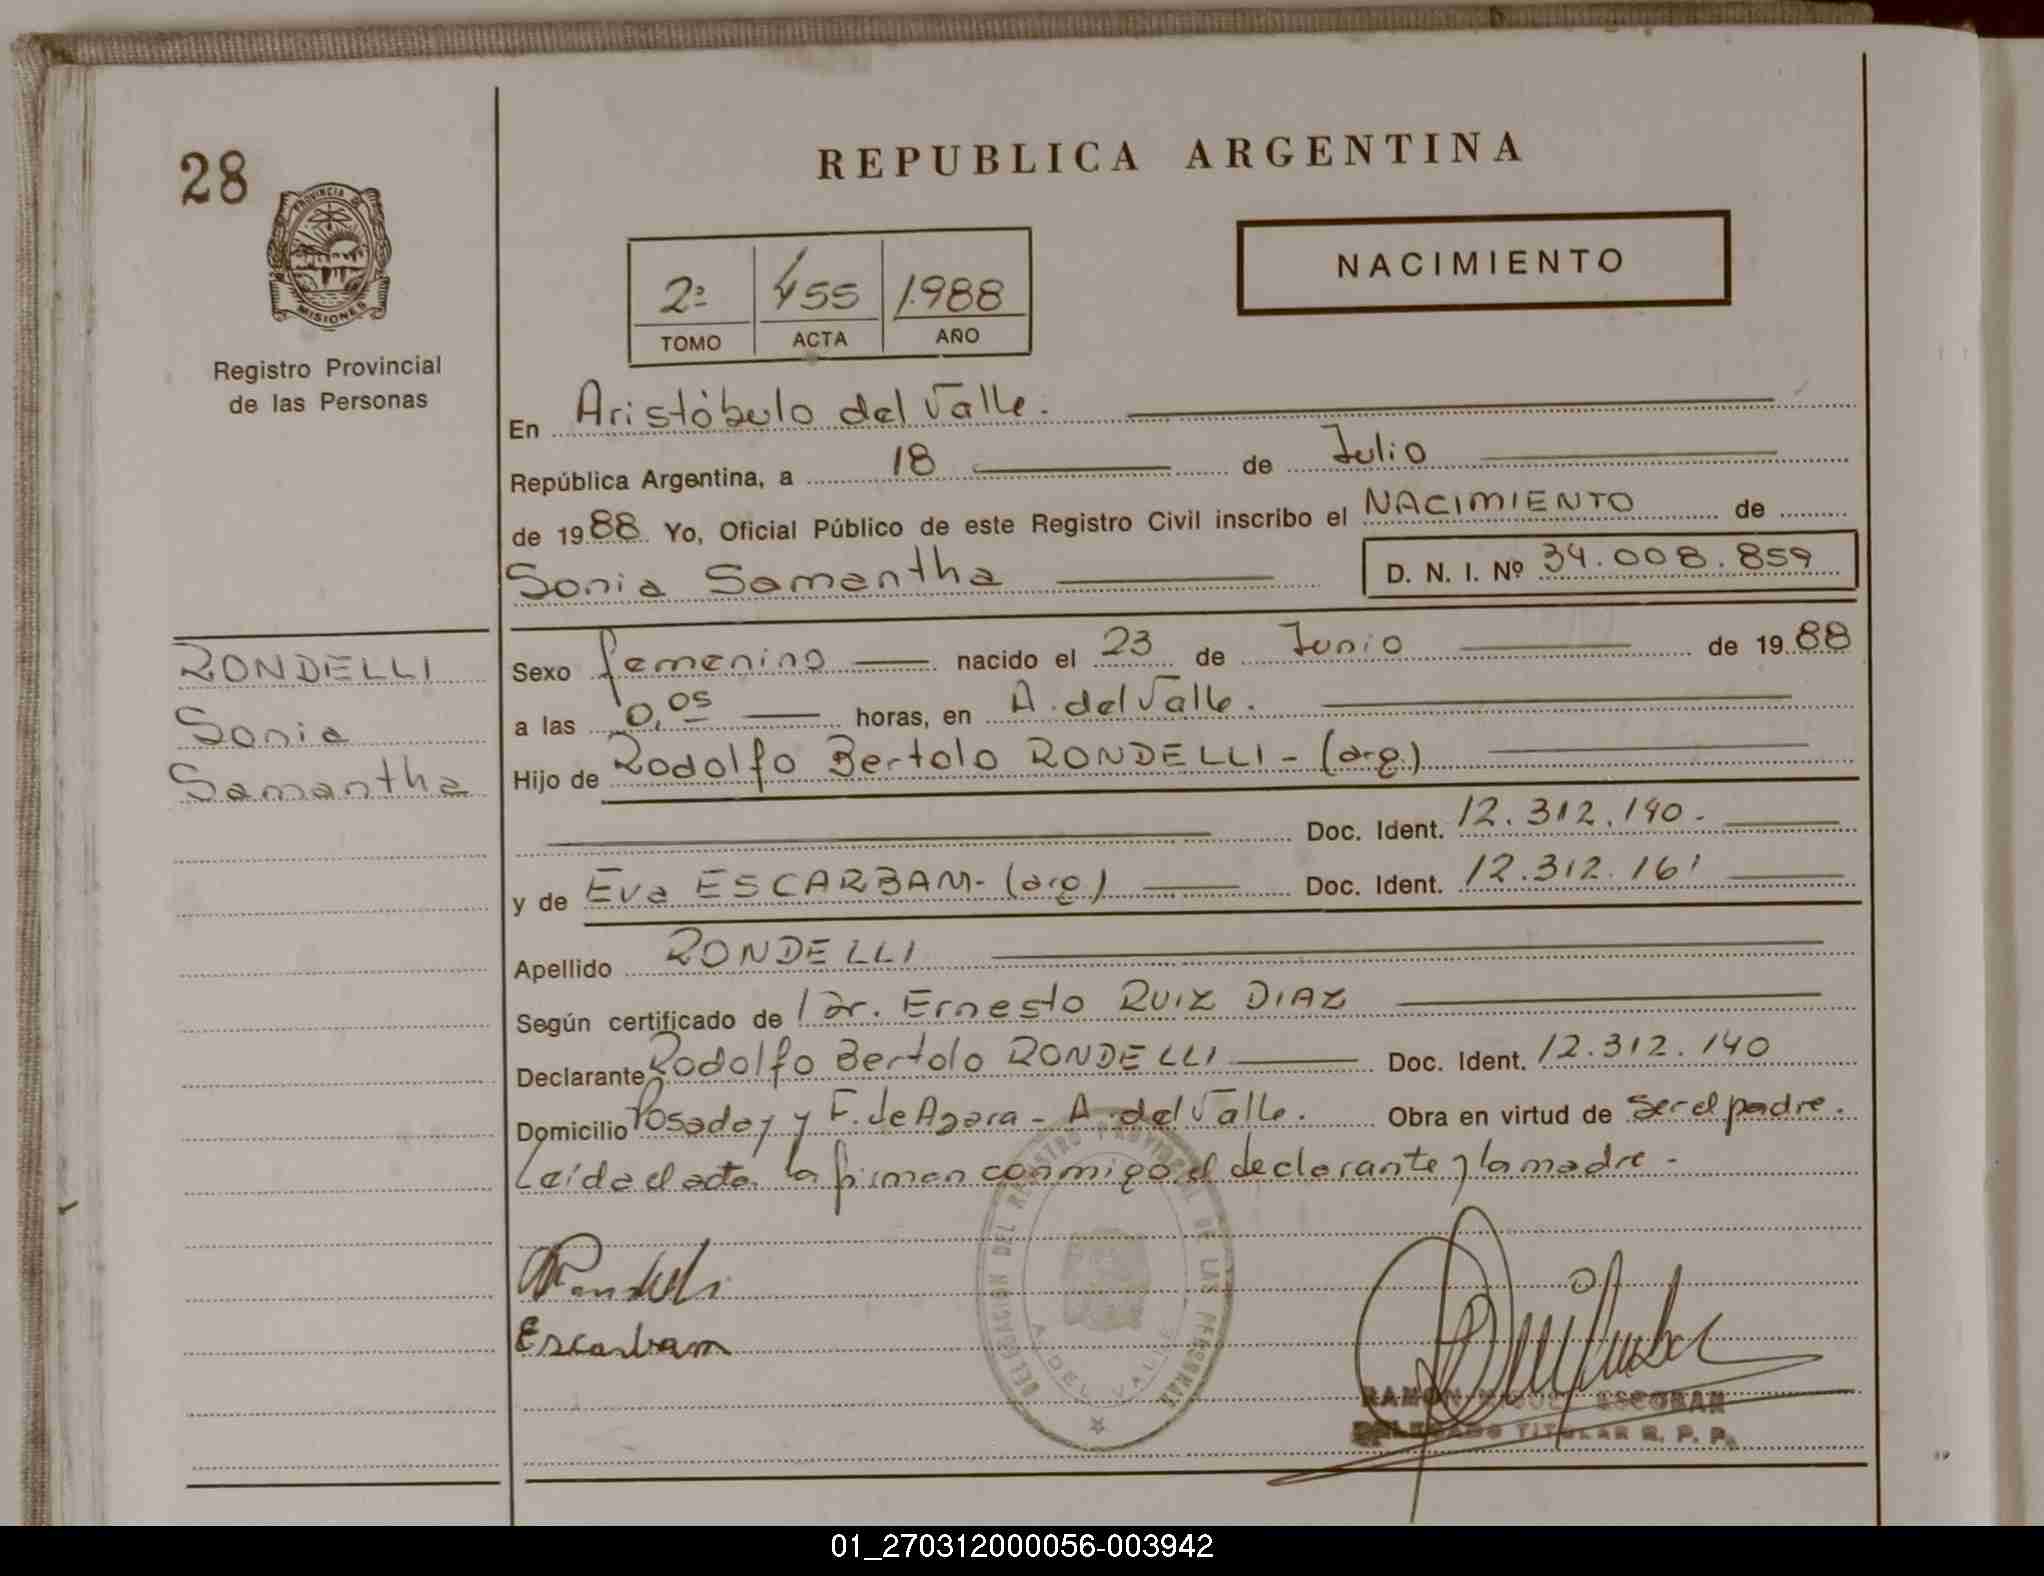 28
PROVINCIA DE
MISIONES
Registro Provincial
de las Personas
REPUBLICA ARGENTINA
NACIMIENTO
2º 455 1.988
TOMO ACTA AÑO
En Aristóbulo del Valle.
República Argentina, a 18 de Julio
de 1988 Yo, Oficial Público de este Registro Civil inscribo el NACIMIENTO de
Sonia Samantha D. N. I. Nº 34.008.859
RONDELLI
Sonia
Samantha
Sexo femenino nacido el 23 de Junio de 1988
a las 0,05 horas, en A. del Valle.
Hijo de Rodolfo Bertolo RONDELLI - (arg)
Doc. Ident. 12.312.140.
y de Eva ESCARBAM - (arg) Doc. Ident. 12.312.161
Apellido RONDELLI
Según certificado de Dr. Ernesto RUIZ DIAZ
Declarante Rodolfo Bertolo RONDELLI Doc. Ident. 12.312.140
Domicilio Posadas y F. de Azara - A. del Valle. Obra en virtud de ser el padre.
Leída el acta la firman conmigo el declarante y la madre -
Rondelli
Escarbam
DELEGACION DEL REGISTRO PROVINCIAL DE LAS PERSONAS
A. DEL VALLE
RAMON MIGUEL ESCOBAR
DELEGADO TITULAR R. P. P.
01_270312000056-003942